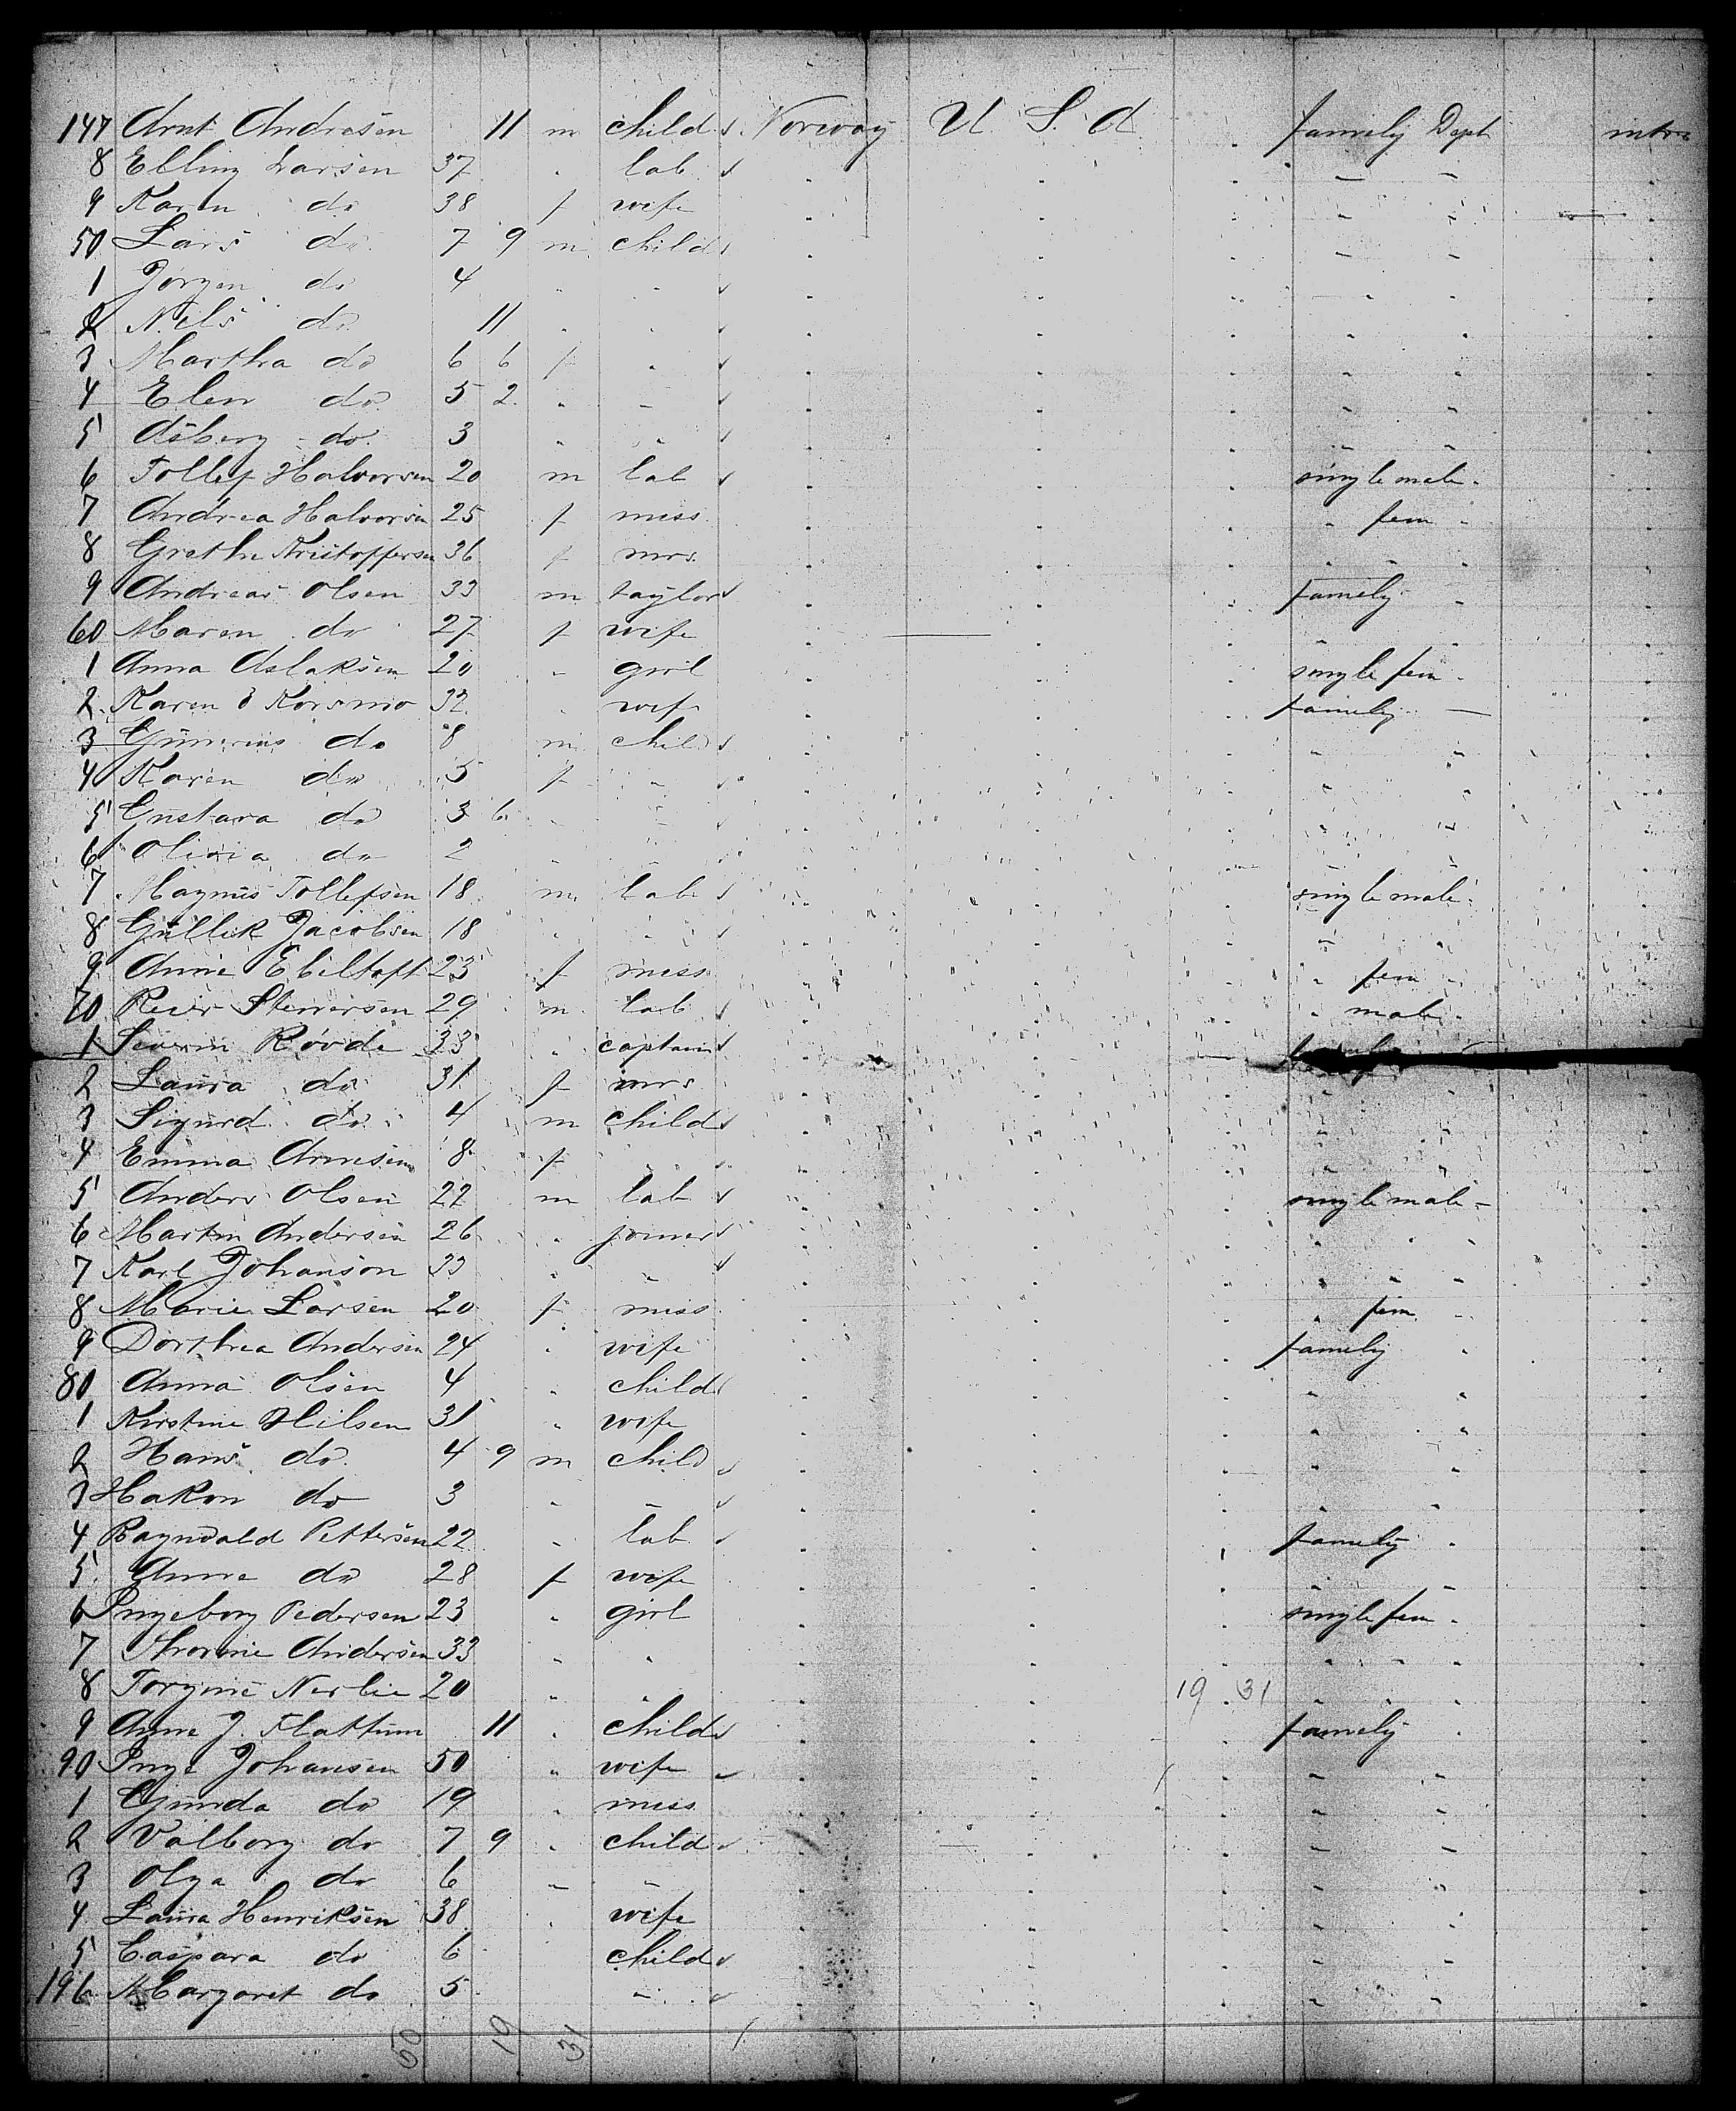 147 Arnt Andresen 11 m child Norway U. S. A family Dept
8 Elling Larsen 37 " lab " "
9 Karen do 38 f wife " "
50 Lars do 7 9 m child " "
1 Jorgen do 4 " " " "
2 Nils do 11 " " " "
3 Martha do 6 6 f " " "
4 Elen do 5 2 " " " "
5 Asberg do 3 " " " "
6 Tollef Halvorsen 20 m lab single male "
7 Andrea Halvorsen 25 f miss " fem "
8 Grethe Kristoffersen 36 f mrs. " " "
9 Andreas Olsen 33 m taylor family "
60 Maren do 27 f wife " "
1 Anna Aslaksen 20 " girl single fem "
2 Karen Korsmo 32 " wife family "
3 do 8 m child " "
4 Karen do 5 f " " "
5 Gustava do 3 6 " " " "
6 Olivia do 2 " " " "
7 Magnus Tollefsen 18 m lab single male "
8 Gullik Jacobsen 18 " " " " "
9 Anne Ebeltoft 23 f miss " fem "
70 29 m lab " male "
1 Severin Rövde 33 " captain
2 Laura do 31 f mrs " "
3 Sigurd do 4 m child " "
4 Emma 8 f " " "
5 Anders Olsen 22 m lab single male "
6 Martin Andersen 26 " joiner " " "
7 Karl Johanson 33 " " " " "
8 Marie Larsen 20 f miss " fem "
9 Dorthea Andersen 24 " wife family "
80 Anna Olsen 4 " child " "
1 Kirstine Nilsen 31 " wife " "
2 Hans do 4 9 m child " "
3 Hakon do 3 " " " "
4 Ragnvald Pettersen 22 " lab family "
5 Anne do 28 f wife " "
6 Ingeborg Pedersen 23 " girl single fem "
7 Andersen 33 " " " " "
8 Torgine 20 " " 19 31 " " "
9 Anne J. Flattum 11 " child family "
90 Inge Johansen 50 " wife " "
1 Gunda do 19 " miss " "
2 Valborg do 7 9 " child " "
3 Olga do 6 " " " "
4 Laura Henriksen 38 " wife " "
5 Caspara do 6 child " "
196 Margaret do 5 " " "
50 19 31